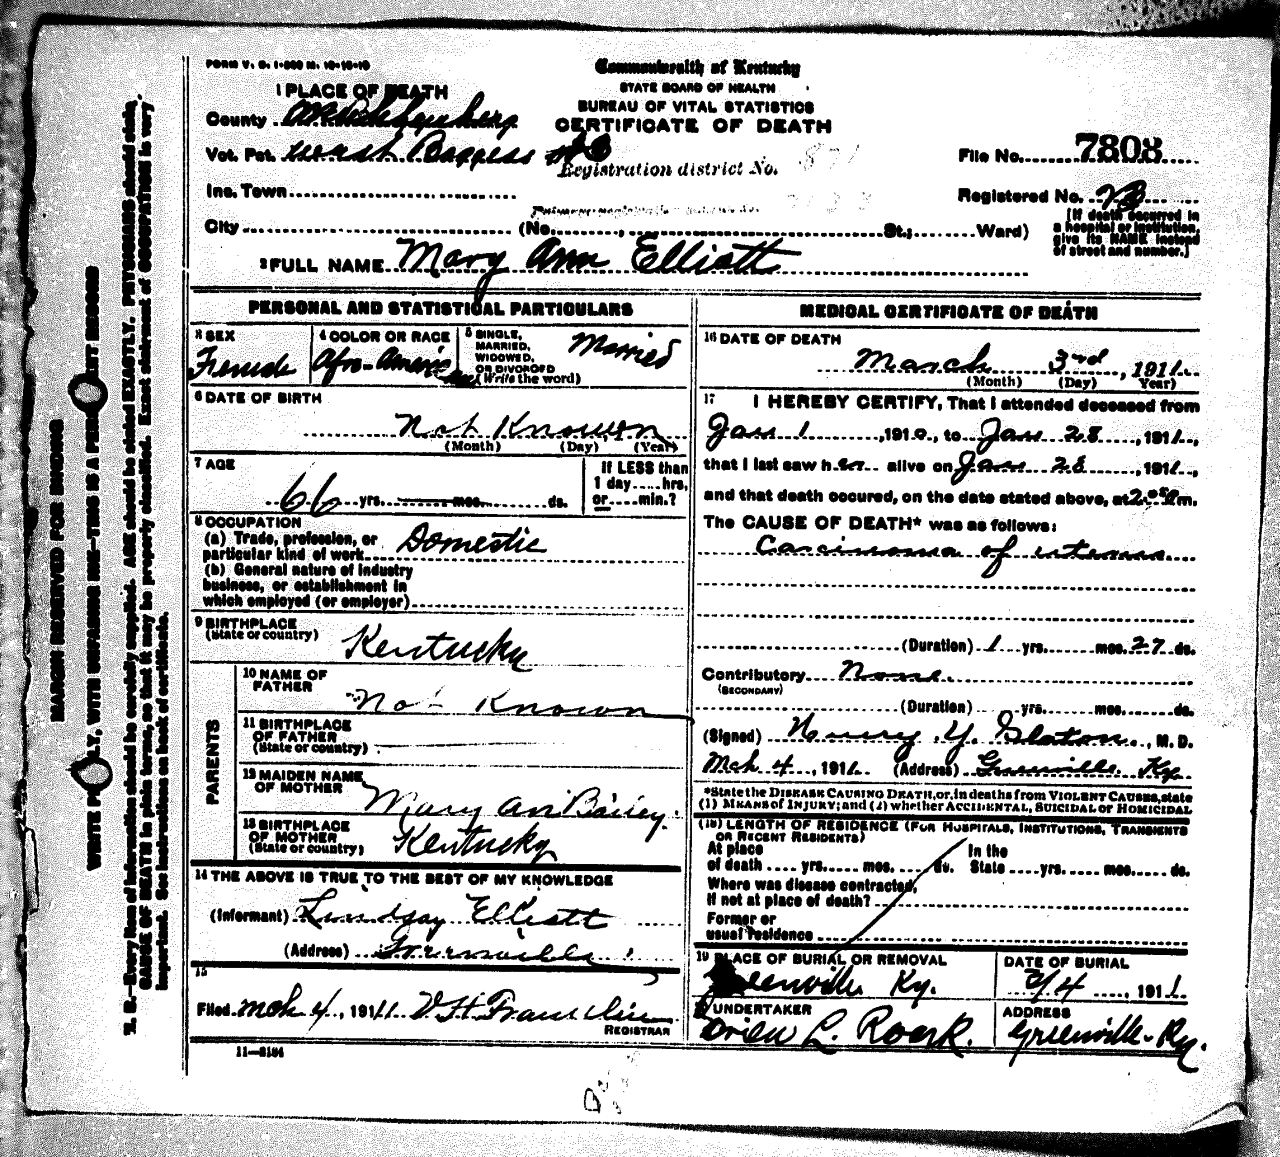 FORM V. S. 1-
Commonwealth of Kentucky
STATE BOARD OF HEALTH
BUREAU OF VITAL STATISTICS
CERTIFICATE OF DEATH
1 PLACE OF DEATH
County Muhlenberg
Vot. Pct. West Boggess
Registration district No. 871
File No. 7808
Inc. Town
Registered No.
Primary registration district No.
City (No. , St.; Ward)
(If death occurred in
a hospital or institution,
give its NAME instead
of street and number.)
2 FULL NAME Mary Ann Elliott
PERSONAL AND STATISTICAL PARTICULARS
3 SEX
Female
4 COLOR OR RACE
Afro-American
5 SINGLE,
MARRIED,
WIDOWED,
OR DIVORCED
(Write the word)
Married
6 DATE OF BIRTH
Not Known
(Month) (Day) (Year)
7 AGE
66 yrs. mos. ds.
If LESS than
1 day.....hrs.
or.....min.?
8 OCCUPATION
(a) Trade, profession, or
particular kind of work Domestic
(b) General nature of industry
business, or establishment in
which employed (or employer)
9 BIRTHPLACE
(State or country) Kentucky
PARENTS
10 NAME OF
FATHER
Not Known
11 BIRTHPLACE
OF FATHER
(State or country)
12 MAIDEN NAME
OF MOTHER
Mary An Bailey.
13 BIRTHPLACE
OF MOTHER
(State or country) Kentucky
14 THE ABOVE IS TRUE TO THE BEST OF MY KNOWLEDGE
(Informant) Lindsay Elliott
(Address) Greenville
15
Filed Mch 4, 1911 V H Franklin
REGISTRAR
11-3184
MEDICAL CERTIFICATE OF DEATH
16 DATE OF DEATH
March 3rd, 1911.
(Month) (Day) Year)
17 I HEREBY CERTIFY, That I attended deceased from
Jan 1, 1910, to Jan 28, 1911,
that I last saw her alive on Jan 28, 1911,
and that death occured, on the date stated above, at 2 m.
The CAUSE OF DEATH* was as follows:
Carcinoma of uterus
(Duration) 1 yrs. mos. 27 ds.
Contributory None.
(SECONDARY)
(Duration) yrs. mos. ds.
(Signed) Henry Y. Slaton, M. D.
Mch 4, 1911. (Address) Greenville Ky.
*State the DISEASE CAUSING DEATH, or, in deaths from VIOLENT CAUSES, state
(1) MEANS of INJURY; and (2) whether ACCIDENTAL, SUICIDAL or HOMICIDAL
(18) LENGTH OF RESIDENCE (FOR HOSPITALS, INSTITUTIONS, TRANSIENTS
OR RECENT RESIDENTS)
At place In the
of death .... yrs. mos. ds. State .... yrs. mos. ds.
Where was disease contracted,
if not at place of death?
Former or
usual residence
19 PLACE OF BURIAL OR REMOVAL
Greenville Ky.
DATE OF BURIAL
3/4, 1911.
20 UNDERTAKER
Orien L. Roark.
ADDRESS
Greenville-Ky.
MARGIN RESERVED FOR BINDING
WRITE PLAINLY, WITH UNFADING INK—THIS IS A PERMANENT RECORD
N. B.—Every item of information should be carefully supplied. AGE should be stated EXACTLY. PHYSICIANS should state
CAUSE OF DEATH in plain terms, so that it may be properly classified. Exact statement of OCCUPATION is very
important. See instructions on back of certificate.